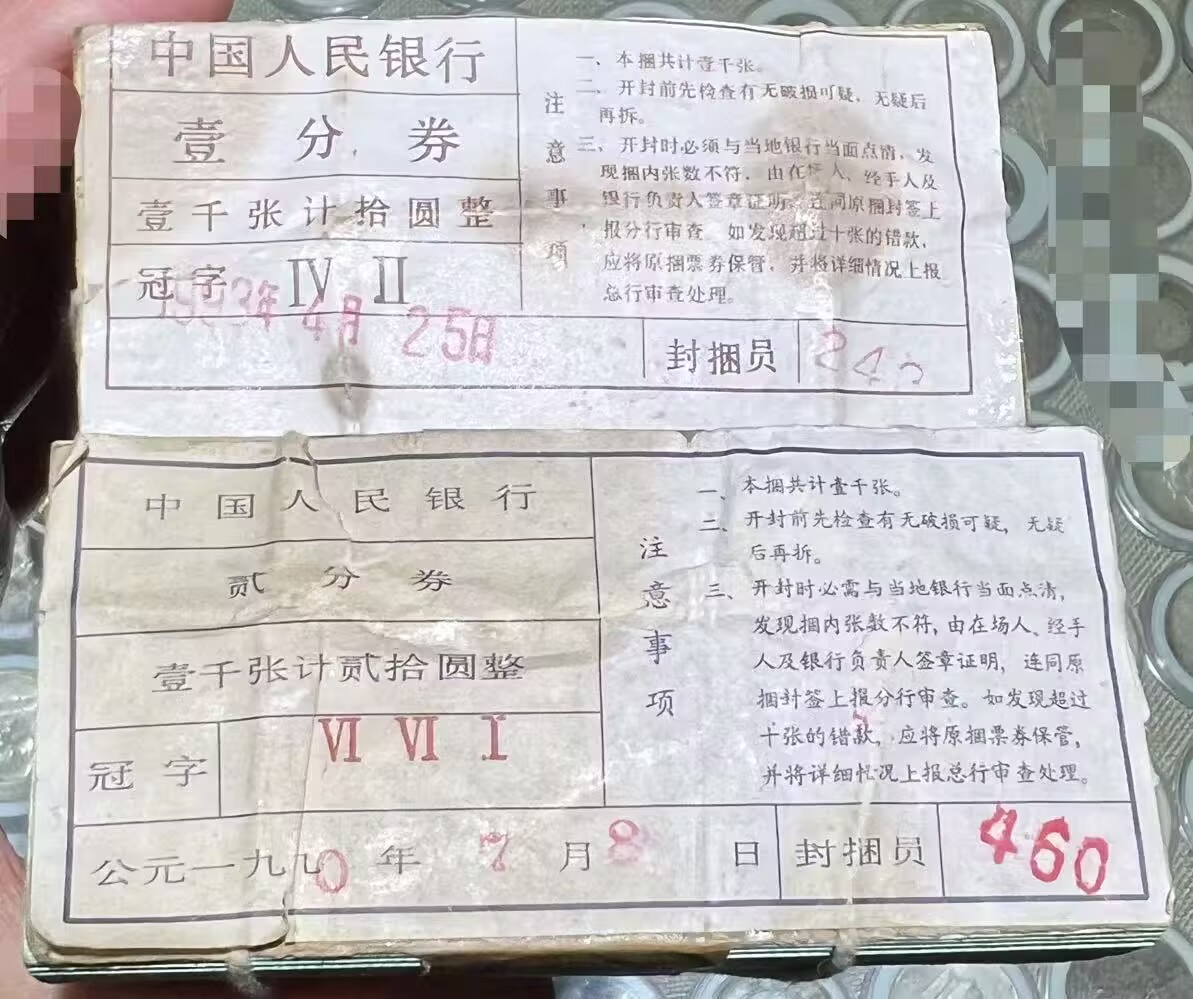 中国人民银行
壹分券
壹千张计拾圆整
冠字 Ⅳ Ⅱ
年 4月 25日
封捆员
注意事项
一、本捆共计壹千张。
二、开封前先检查有无破损可疑，无疑后
再拆。
三、开封时必须与当地银行当面点清，发
现捆内张数不符，由在场人、经手人及
银行负责人签章证明，连同原捆封签上
报分行审查 如发现超过十张的错款，
应将原捆票券保管，并将详细情况上报
总行审查处理。
中国人民银行
贰分券
壹千张计贰拾圆整
冠字 Ⅵ Ⅵ Ⅰ
注意事项
一、本捆共计壹千张。
二、开封前先检查有无破损可疑，无疑
后再拆。
三、开封时必需与当地银行当面点清，
发现捆内张数不符，由在场人、经手
人及银行负责人签章证明，连同原
捆封签上报分行审查。如发现超过
十张的错款，应将原捆票券保管，
并将详细情况上报总行审查处理。
公元一九九0年7月8日 封捆员 460